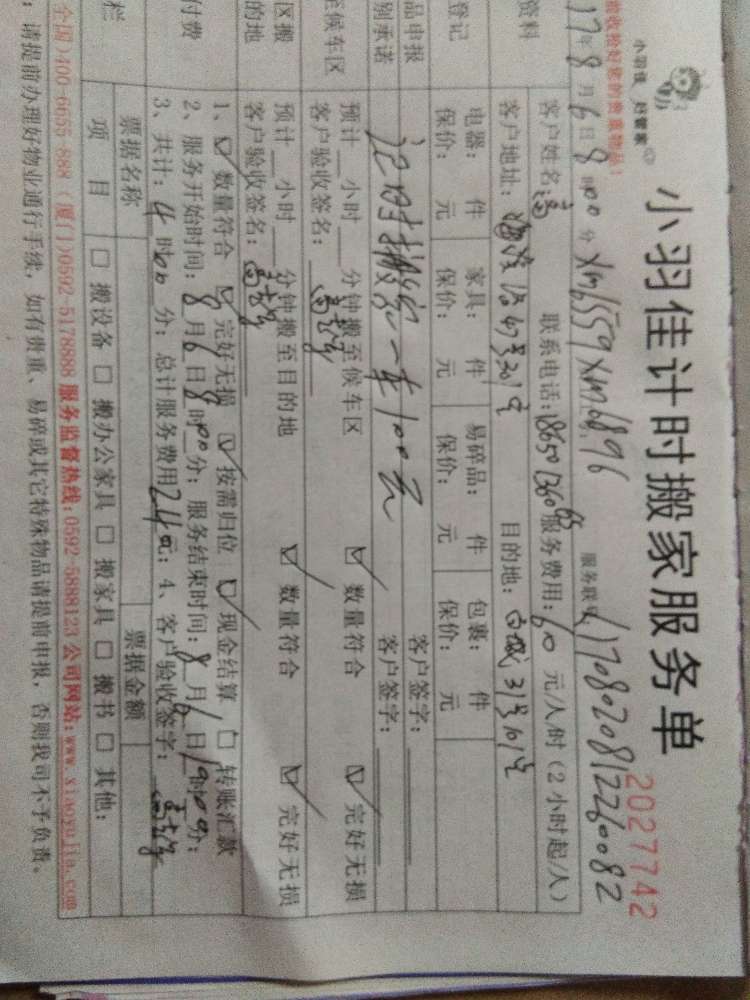 小羽佳 好管家
小羽佳计时搬家服务单
2027742
17年8月6日8时00分 xm6559 xm6896 服务联单
客户姓名: 联系电话:18650136065 服务费用:60元/人/时(2小时起/人)
资料
客户地址: 号301室 目的地:白城31号101室
登记
电器: 件 家具: 件 易碎品: 件 包裹: 件
保价: 元 保价: 元 保价: 元 保价: 元
品申报 客户签字:
别承诺 计时搬家一车100元 客户签字:
至候车区 预计 小时 分钟搬至候车区 数量符合 完好无损
客户验收签名:
区搬 预计 小时 分钟搬至目的地 数量符合 完好无损
的地 客户验收签名:
1、 数量符合 完好无损 按需归位 现金结算 转账汇款
付费 2、服务开始时间:8月6日8时00分;服务结束时间:8月6日
3、共计:4时00分;总计服务费用 元;4、客户验收签字:
票据名称 票据金额
栏 项目 搬设备 搬办公家具 搬家具 搬书 其他:
全国)400-6655-888(厦门)0592-5178888 服务监督热线:0592-5888123 公司网站:www.xiaoyujia.com
:请提前办理好物业通行手续,如有贵重、易碎或其它特殊物品请提前申报,否则我司不予负责。